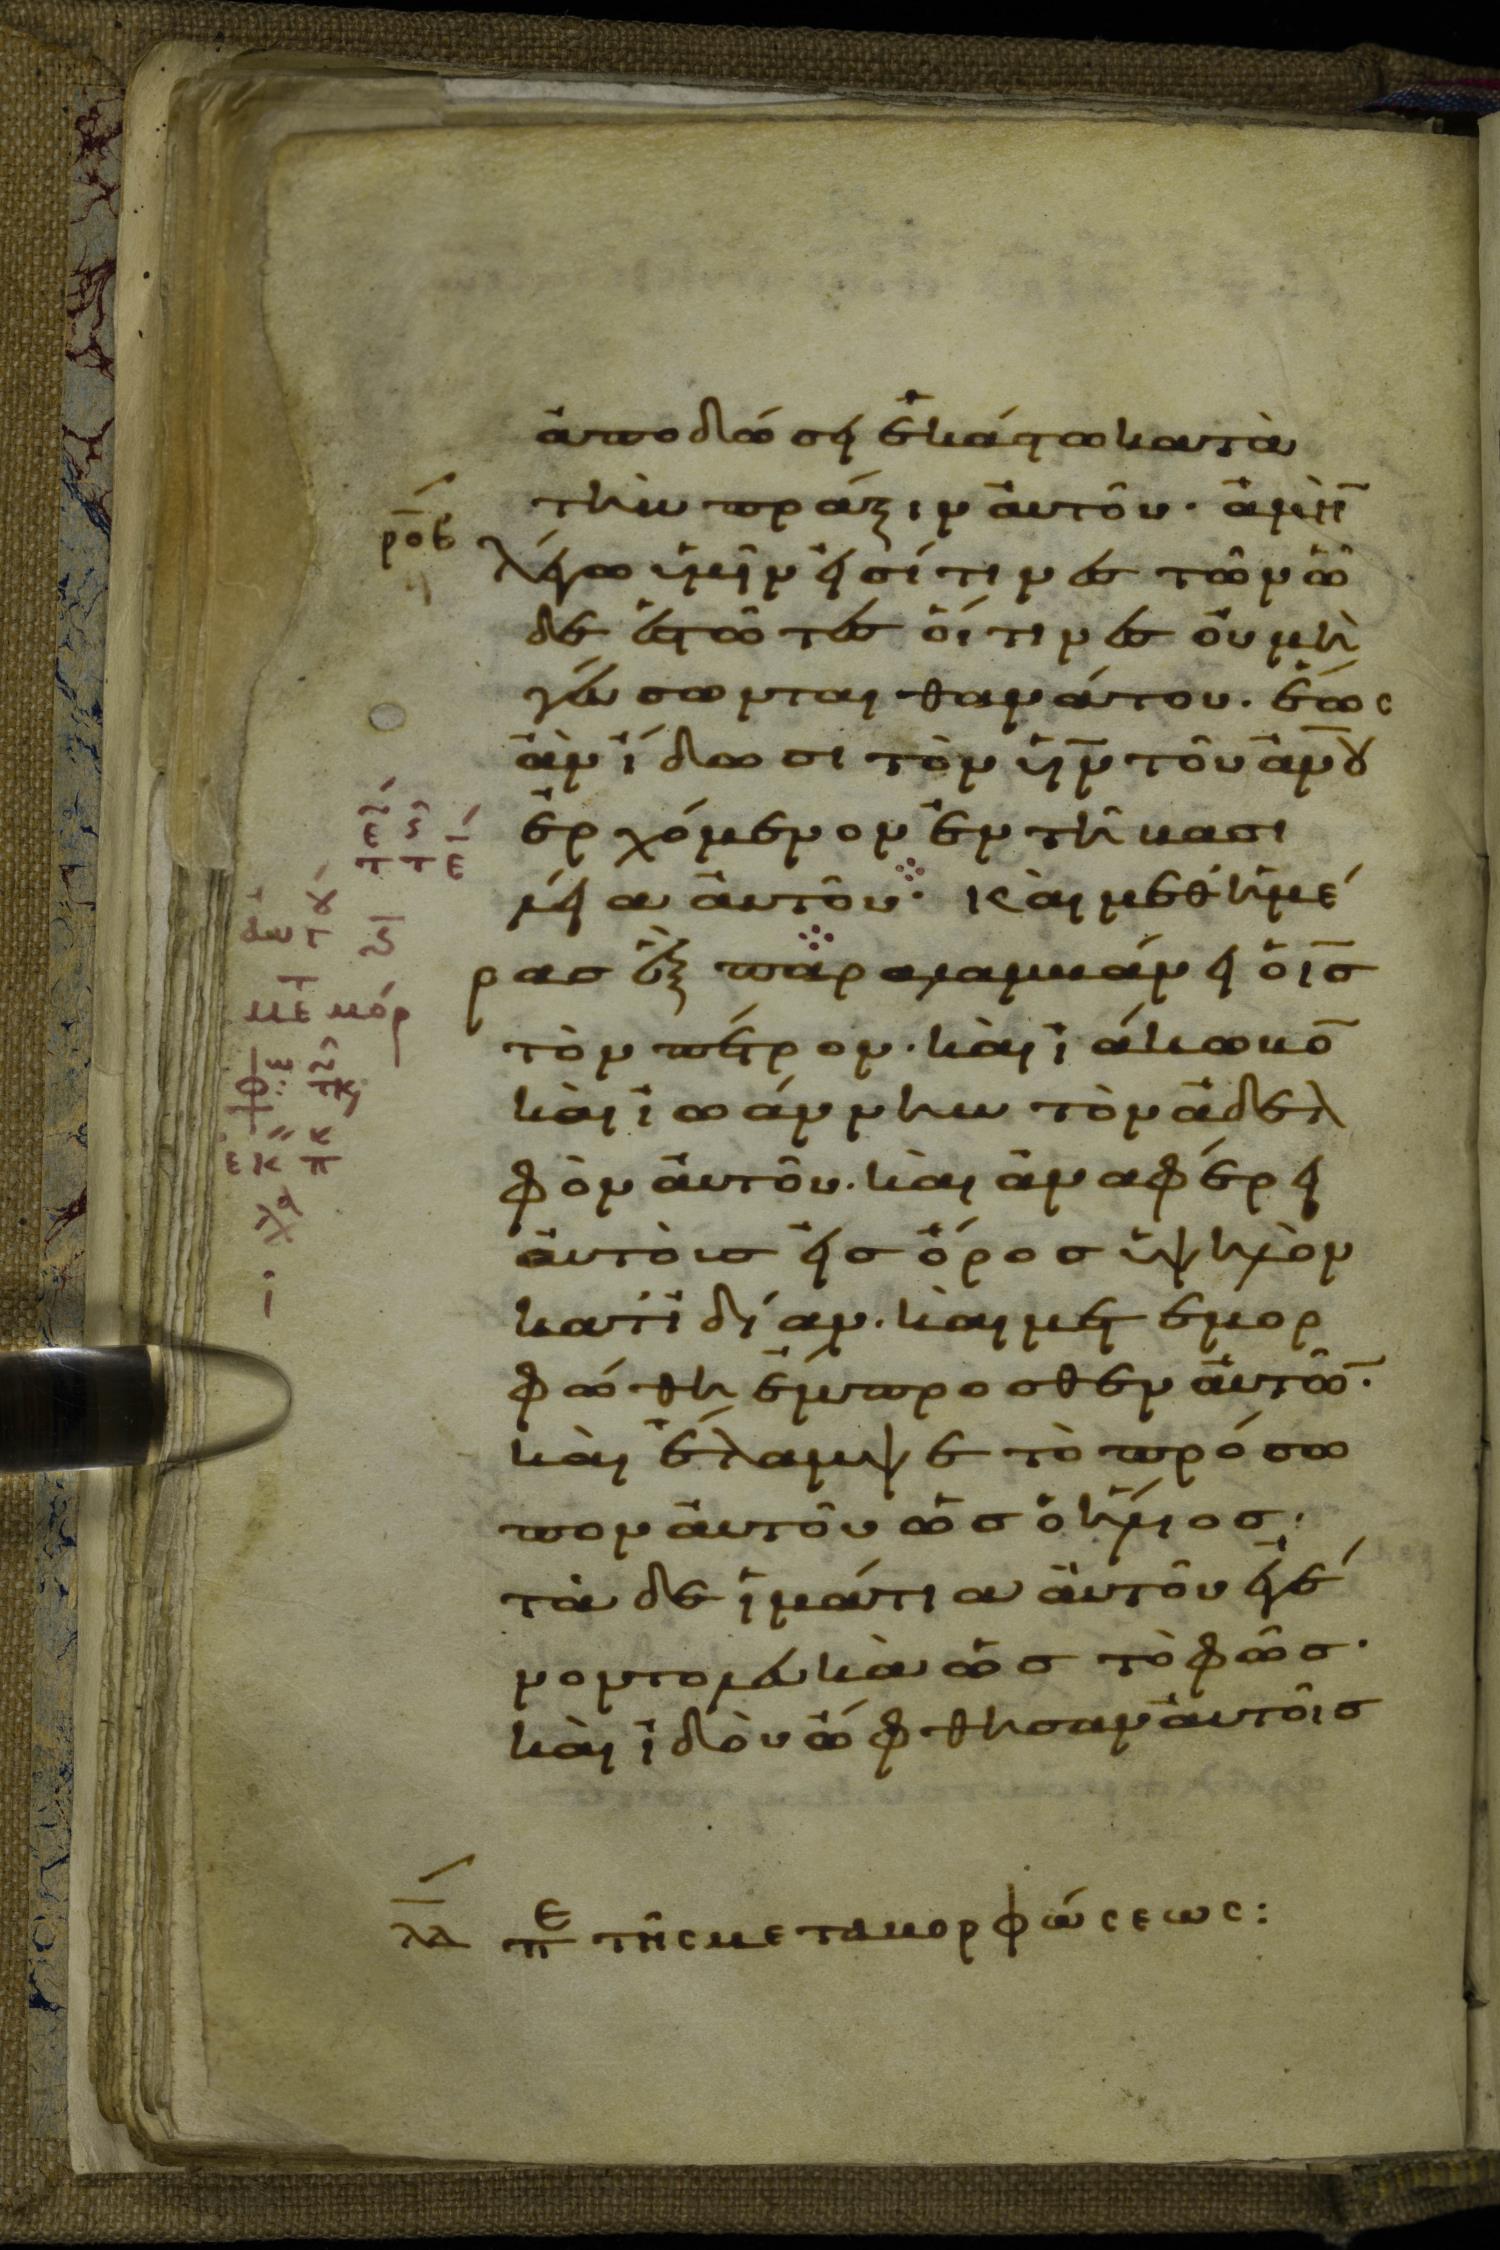 ἀποδώσει ἑκάστω κατὰ
τὴν πράξιν αὐτοῦ· ἀμὴν
ροβ
λέγω ὑμῖν εἰσί τινες τῶν ὧ
δε ἑστῶτες οἵτινες οὐ μὴ
γεύσωνται θανάτου· ἕως
ἂν ἴδωσι τὸν υν τοῦ ανου
ἐρχόμενον ἐν τῆ βασι
λεία αὐτοῦ· Καὶ μεθ ἡμέ
ρας ἓξ παραλαμβάνει ὁ ις
τὸν πέτρον· καὶ ἰάκωβον
καὶ ἰωάννην τὸν ἀδελ
φὸν αὐτοῦ· καὶ ἀναφέρει
αὐτοὺς εἰς ὄρος ὑψηλὸν
κατ ἰδίαν· καὶ μετεμορ
φώθη ἔμπροσθεν αὐτῶν·
καὶ ἔλαμψε τὸ πρόσω
πον αὐτοῦ ὡς ὁ ἥλιος·
τὰ δὲ ἱμάτια αὐτοῦ ἐγέ
νοντο λευκὰ ὡς τὸ φῶς·
καὶ ἰδοὺ ὤφθησαν αὐτοῖς
λδ πε τῆς μεταμορφώσεως: